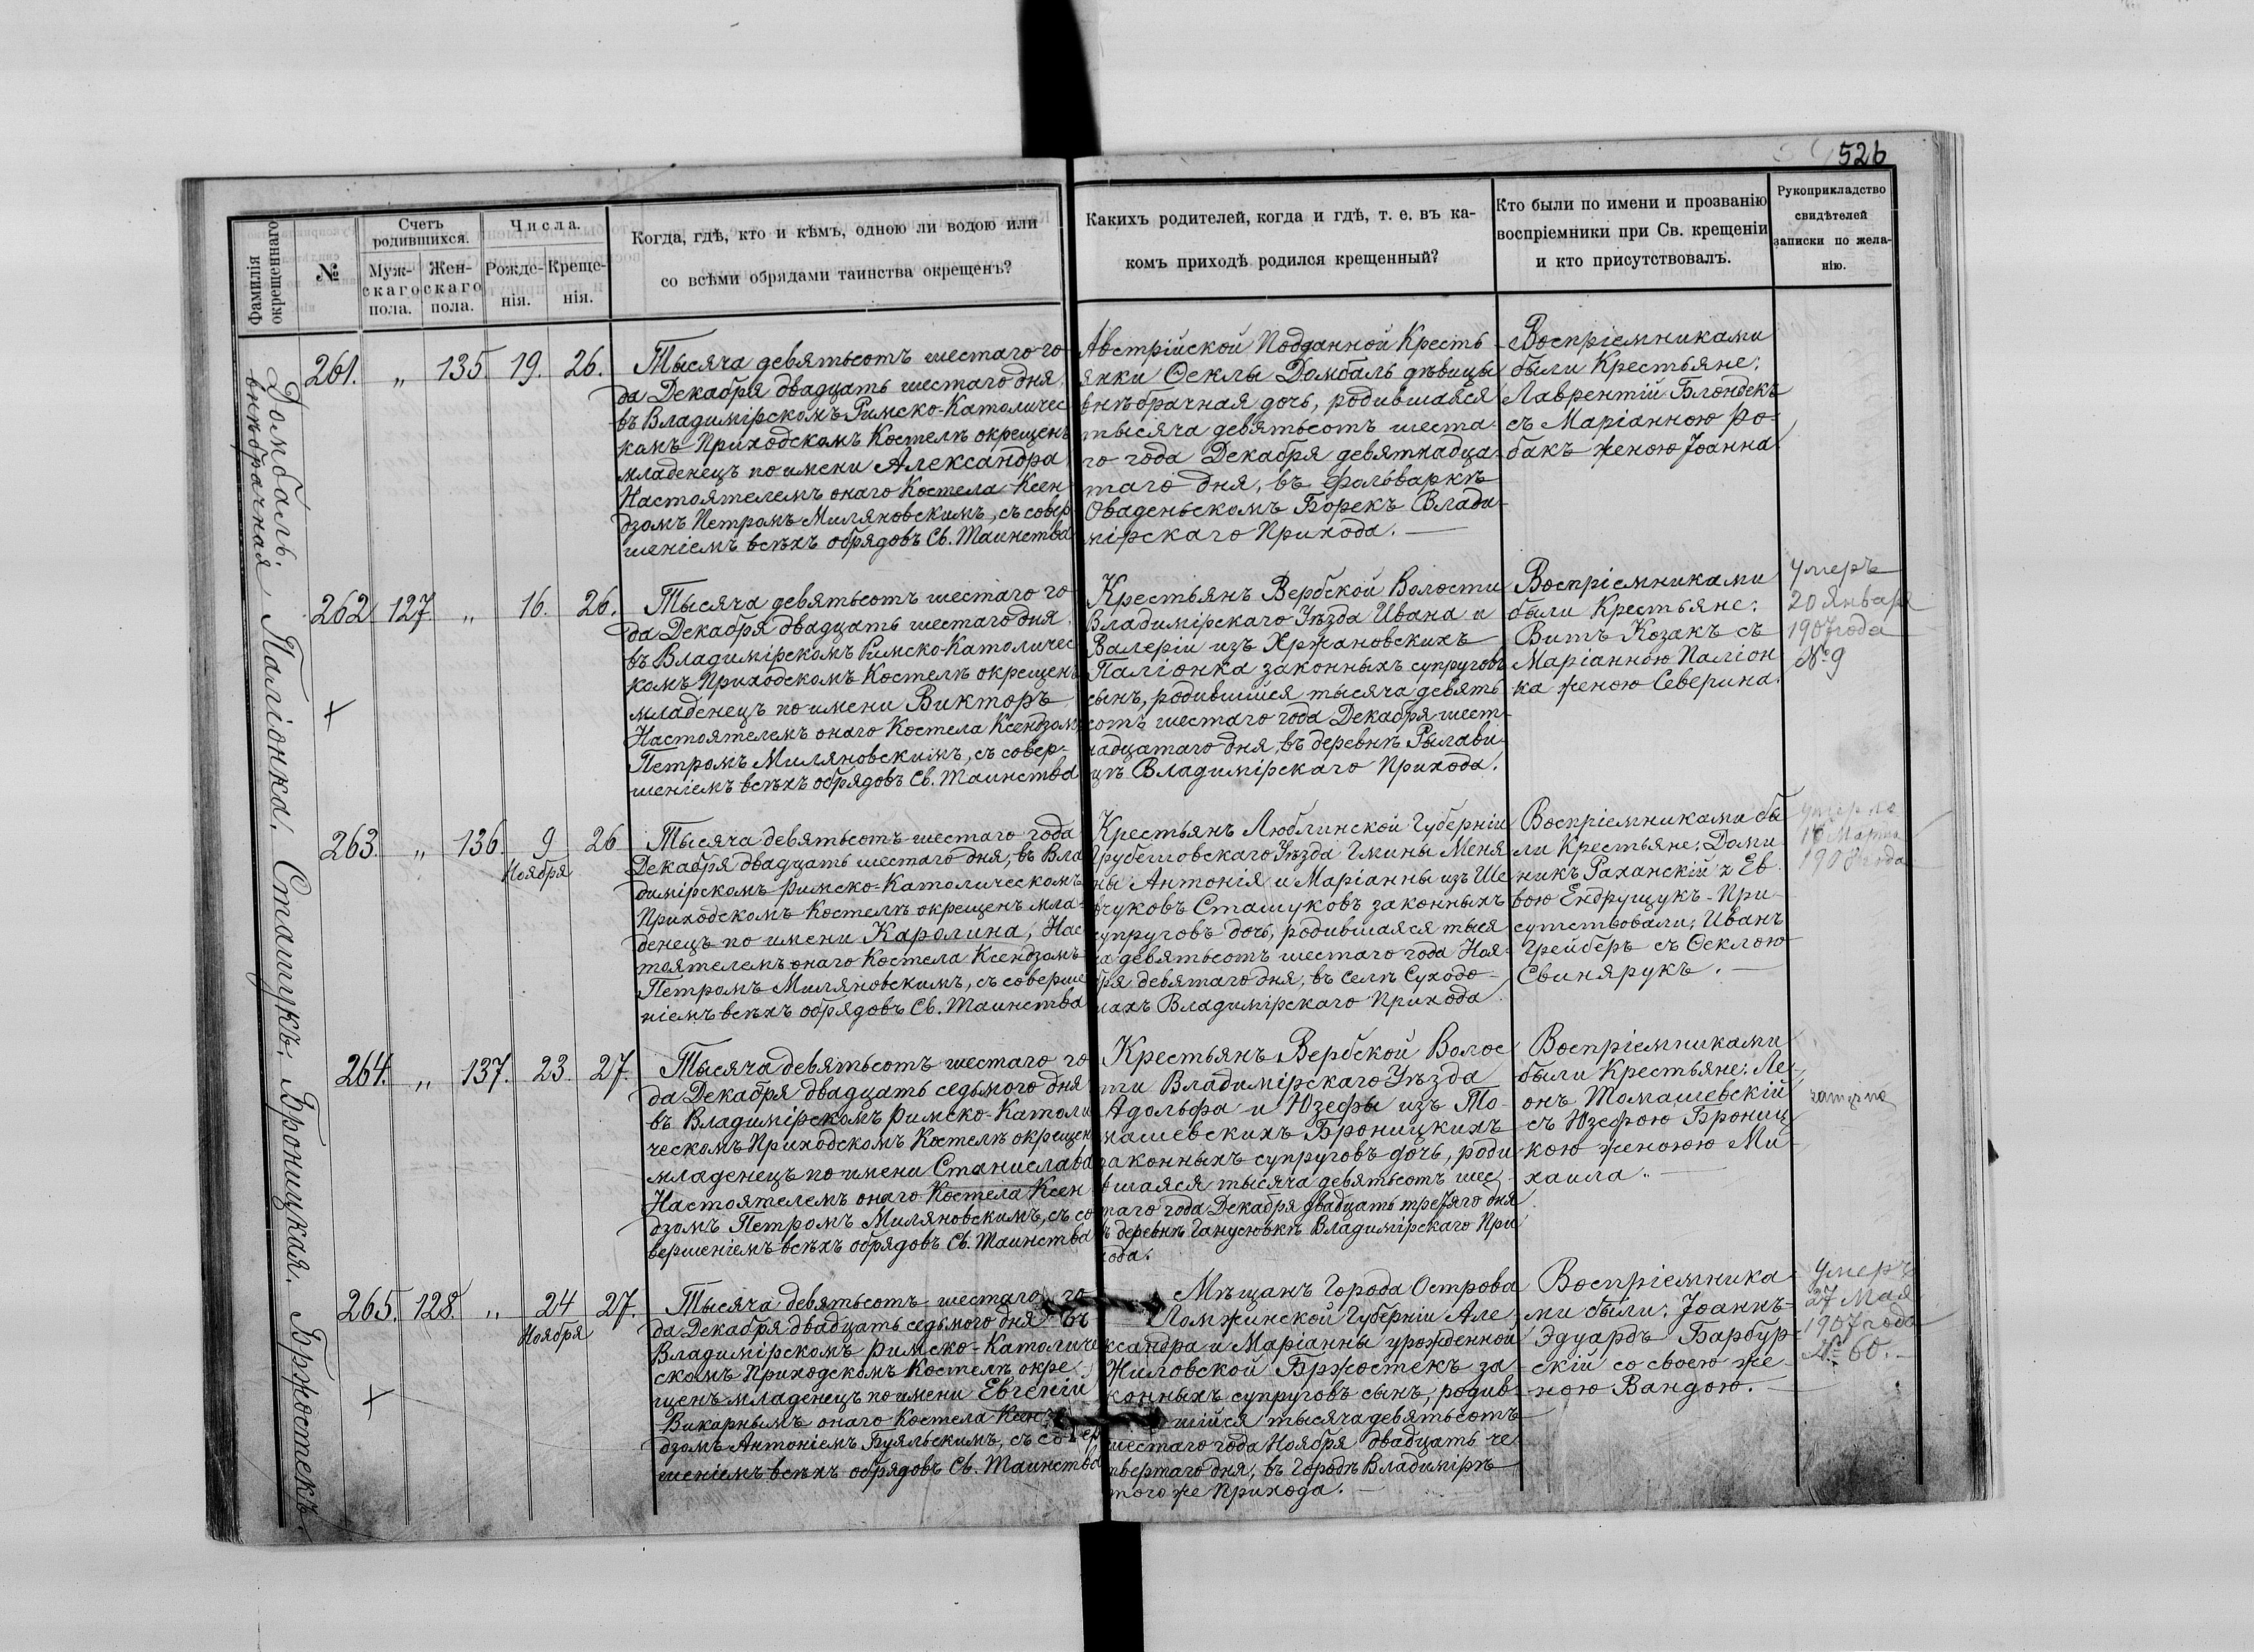 526
Фамилія окрещеннаго
№
Счетъ родившихся.
Мужскаго пола.
Женскаго пола.
Числа.
Рожденія.
Крещенія.
Когда, гдѣ, кто и кѣмъ, одною ли водою или
со всѣми обрядами таинства окрещенъ?
Какихъ родителей, когда и гдѣ, т. е. въ ка-
комъ приходѣ родился крещенный?
Кто были по имени и прозванію
воспріемники при Св. крещеніи
и кто присутствовалъ.
Рукоприкладство
свидѣтелей
записки по жела-
нію.
Домбаль.
внѣбрачная
261. „ 135. 19. 26.
Тысяча девятьсотъ шестаго го-
да Декабря двадцать шестаго дня,
въ Владимірскомъ Римско-Католичес
комъ Приходскомъ Костелѣ окрещенъ
младенецъ по имени Александра,
Настоятелемъ онаго Костела Ксен
дзомъ Петромъ Миляновскимъ, съ совер
шеніемъ всѣхъ обрядовъ Св. Таинства
Австрійской Подданной Кресть-
янки Ѳеклы Домбаль дѣвицы
внѣбрачная дочь, родившаяся
тысяча девятьсотъ шеста-
го года Декабря девятнадца-
таго дня, въ фольваркѣ
Оваденьскомъ Борекъ Влади-
мірскаго Прихода.
Воспріемниками
были Крестьяне:
Лаврентій Блондекъ
съ Маріанною Ро-
бакъ женою Іоанна
Паліонка.
262 127. „ 16. 26.
Тысяча девятьсотъ шестаго го
да Декабря двадцать шестаго дня,
въ Владимірскомъ Римско-Католичес
комъ Приходскомъ Костелѣ окрещенъ
младенецъ по имени Викторъ,
Настоятелемъ онаго Костела Ксендзомъ
Петромъ Миляновскимъ, съ совер-
шеніемъ всѣхъ обрядовъ Св. Таинства
Крестьянъ Вербской Волости
Владимірскаго Уѣзда Ивана и
Валеріи изъ Хржановскихъ
Паліонка законныхъ супруговъ
сынъ, родившійся тысяча девять
сотъ шестаго года Декабря шест-
надцатаго дня, въ деревнѣ Рылави-
цѣ Владимірскаго Прихода.
Воспріемниками
были Крестьяне:
Витъ Козакъ съ
Маріанною Паліон
ка женою Северина.
умеръ
20 Января
1907 года
№ 9
Сташукъ.
263. „ 136. 9 26
Ноября
Тысяча девятьсотъ шестаго года
Декабря двадцать шестаго дня, въ Вла
димірскомъ Римско-Католическомъ
Приходскомъ Костелѣ окрещенъ мла-
денецъ по имени Каролина, Нас
тоятелемъ онаго Костела Ксендзомъ
Петромъ Миляновскимъ, съ соверше
ніемъ всѣхъ обрядовъ Св. Таинства
Крестьянъ Люблинской Губерніи
Грубешовскаго Уѣзда Гмины Меня
ны Антонія и Маріанны изъ Ше
вчуковъ Сташуковъ законныхъ
супруговъ дочь, родившаяся тыся
ча девятьсотъ шестаго года Ноя-
бря девятаго дня, въ селѣ Суходо-
лахъ Владимірскаго Прихода
Воспріемниками бы
ли Крестьяне: Доми
никъ Раханскій и Ев
вою Ендрущукъ - При-
сутствовали: Иванъ
Грейберъ съ Ѳеклою
Свинярукъ.
умерла
Марта
1908 года
Броницкая.
264. „ 137. 23. 27.
Тысяча девятьсотъ шестаго го
да Декабря двадцать седьмого дня
въ Владимірскомъ Римско-Католи
ческомъ Приходскомъ Костелѣ окрещен
младенецъ по имени Станислава
Настоятелемъ онаго Костела Ксен
дзомъ Петромъ Миляновскимъ, съ со
вершеніемъ всѣхъ обрядовъ Св. Таинства
Крестьянъ Вербской Волос
ти Владимірскаго Уѣзда
Адольфа и Юзефы изъ То-
машевскихъ Броницкихъ
законныхъ супруговъ дочь, роди
вшаяся тысяча девятьсотъ шес-
таго года Декабря двадцать третяго дня
въ деревнѣ Ганусювкѣ Владимірскаго При
хода.
Воспріемниками
были Крестьяне: Ле-
онъ Томашевскій
съ Юзефою Брониц
кою женоюю Ми-
хаила.
Бржостекъ.
265. 128. „ 24 27.
Ноября
Тысяча девятьсотъ шестаго го
да Декабря двадцать седьмого дня въ
Владимірскомъ Римско-Католиче
скомъ Приходскомъ Костелѣ окре
щенъ младенецъ по имени Евгеній
Викарнымъ онаго Костела Ксен
дзомъ Антоніемъ Буяльскимъ, съ совер
шеніемъ всѣхъ обрядовъ Св. Таинства
Мѣщанъ Города Острова
Ломжинской Губерніи Але
ксандра и Маріанны урожденной
Жиловской Бржостекъ за-
конныхъ супруговъ сынъ, родив-
шійся тысяча девятьсотъ
шестаго года Ноября двадцать че
твертаго дня, въ Городѣ Владимірѣ
того же Прихода.
Воспріемника
ми были: Іоаннъ-
Эдуардъ Барбур-
скій со своею же-
ною Вандою.
умеръ
27 Мая
1907 года
№ 60.